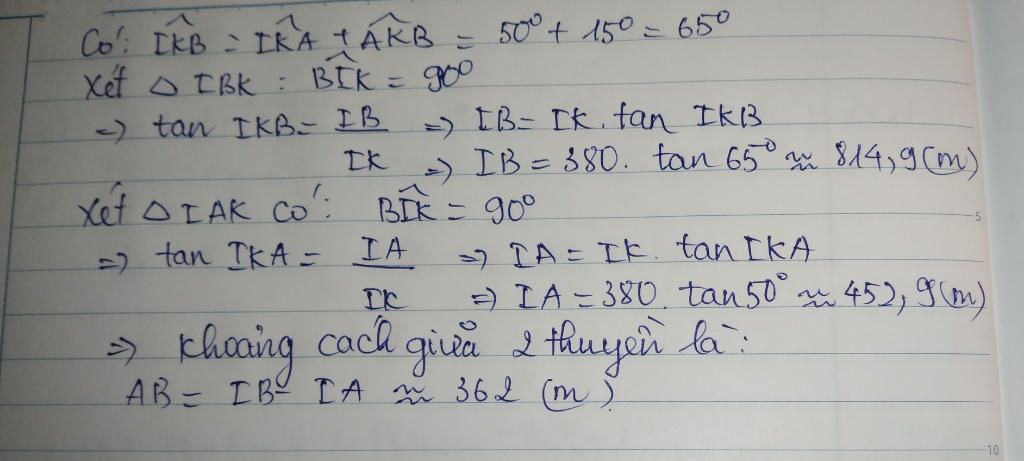 Có: IKB = IKA + AKB = 50° + 15° = 65°
Xét △ IBK : BIK = 90°
=> tan IKB = IB => IB = IK. tan IKB
IK => IB = 380. tan 65° ≈ 814,9(m)
Xét △ IAK có: BIK = 90°
5
=> tan IKA = IA => IA = IK. tan IKA
IK => IA = 380. tan 50° ≈ 452,9(m)
=> khoảng cách giữa 2 thuyền là:
AB = IB - IA ≈ 362 (m)
10